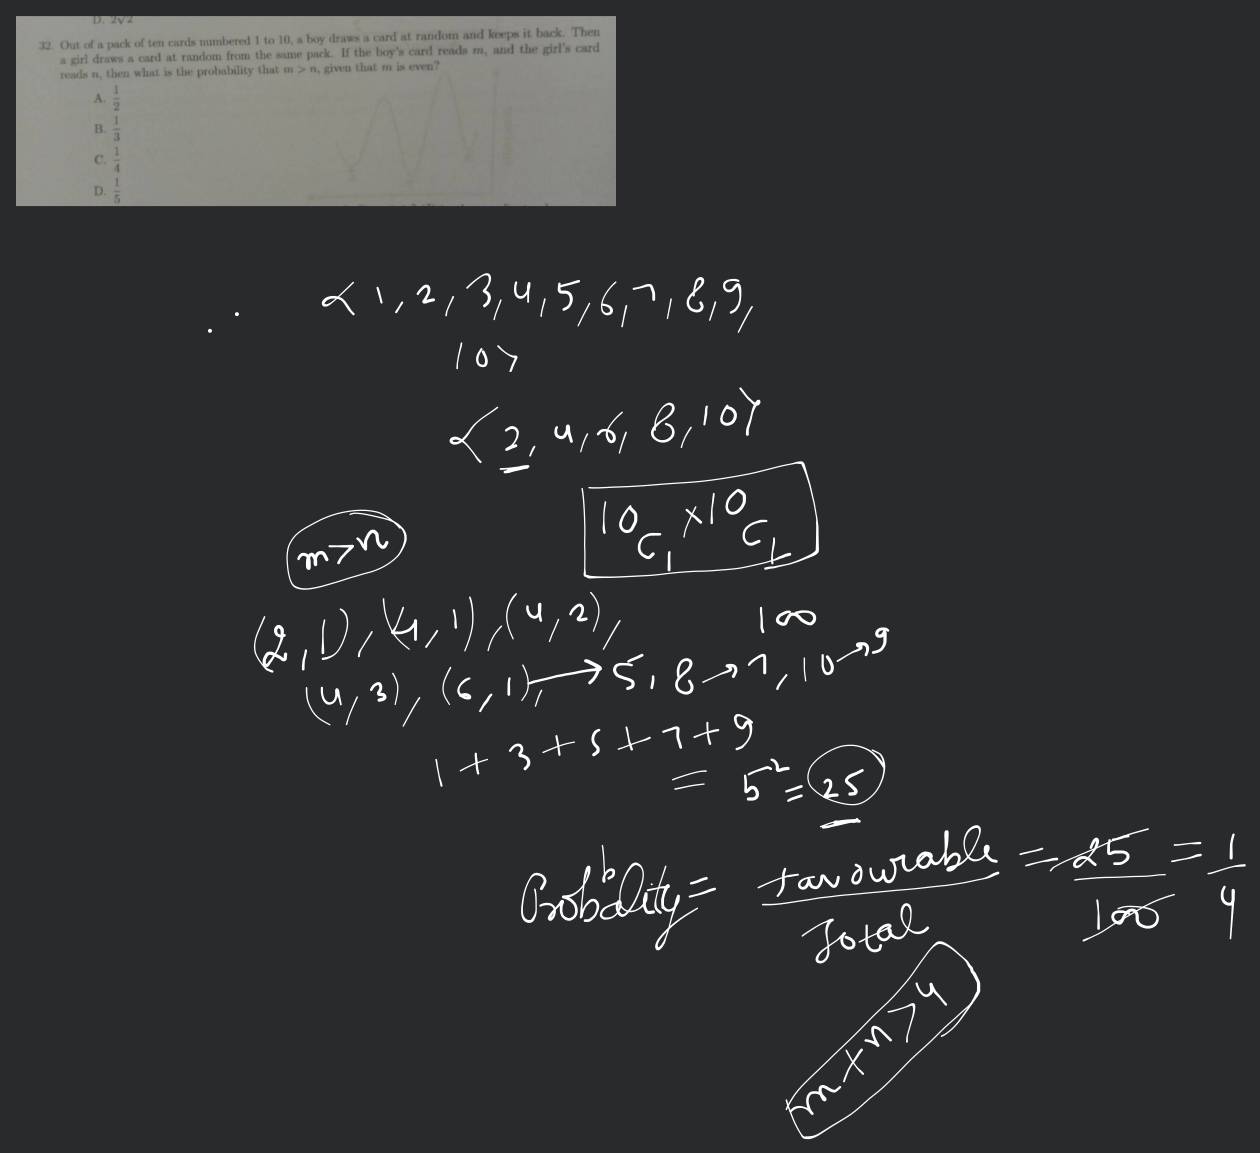 D. 2√2
32. Out of a pack of ten cards numbered 1 to 10, a boy draws a card at random and keeps it back. Then
a girl draws a card at random from the same pack. If the boy's card reads m, and the girl's card
reads n, then what is the probability that m > n, given that m is even?
A. 1/2
B. 1/3
C. 1/4
D. 1/5
∴ < 1, 2, 3, 4, 5, 6, 7, 8, 9,
10 >
< 2, 4, 6, 8, 10 >
10C1 × 10C1
m > n
100
(2, 1), (4, 1), (4, 2),
(4, 3), (6, 1), → 5, 8 → 7, 10 → 9
1 + 3 + 5 + 7 + 9
= 5² = 25
Probability = favourable/Total = 25/100 = 1/4
m + n > 4